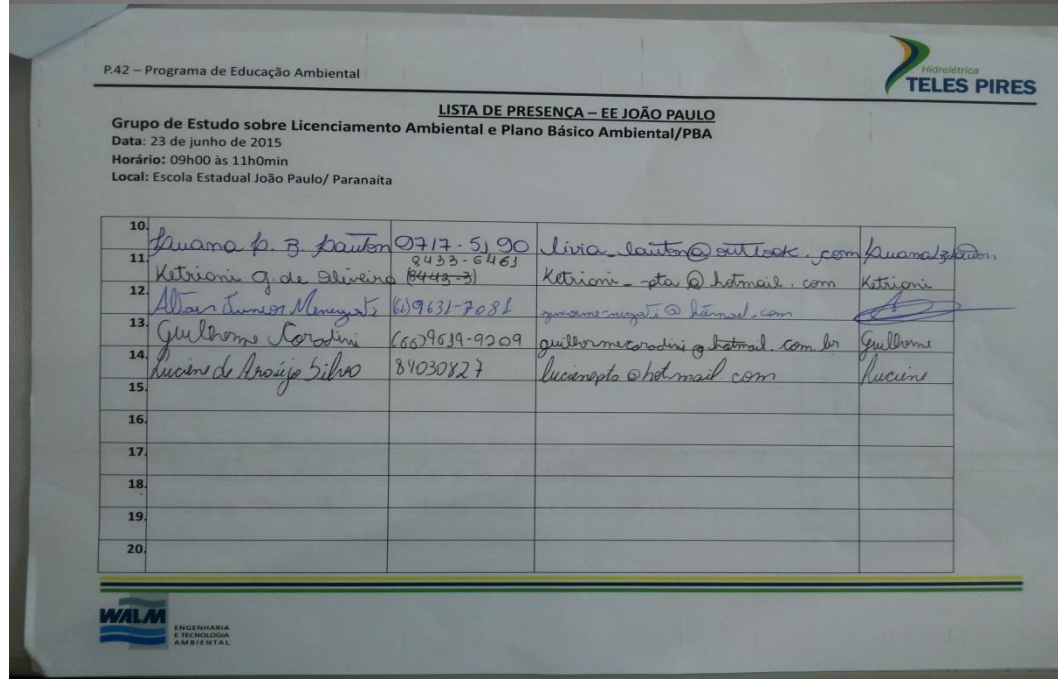 P.42 – Programa de Educação Ambiental
Hidrelétrica
TELES PIRES
LISTA DE PRESENÇA – EE JOÃO PAULO
Grupo de Estudo sobre Licenciamento Ambiental e Plano Básico Ambiental/PBA
Data: 23 de junho de 2015
Horário: 09h00 às 11h0min
Local: Escola Estadual João Paulo/ Paranaíta
10. Luana p. B. Lauton 9717-5190 livia_lauton@outlook.com
11. Ketrioni g. de Oliveira 8433-6461 Ketrioni_pta@hotmail.com Ketrioni
12. Altair Junior 9631-7081
13. Guilherme Corodini (66)9639-9209 guilhermecorodini@hotmail.com.br Guilherme
14. Luciene de Araújo Silva 84030827 lucienepta@hotmail.com Luciene
15.
16.
17.
18.
19.
20.
WALM
ENGENHARIA
E TECNOLOGIA
AMBIENTAL